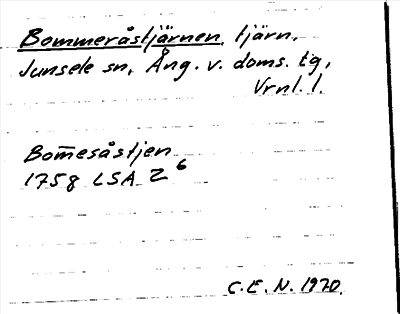 Bommeråstjärnen, tjärn.
Junsele sn, Ång. v. doms. tg,
Vrnl. l.
Bom̅esåstjen
1758 LSA Z⁶
C.E.N. 1970.